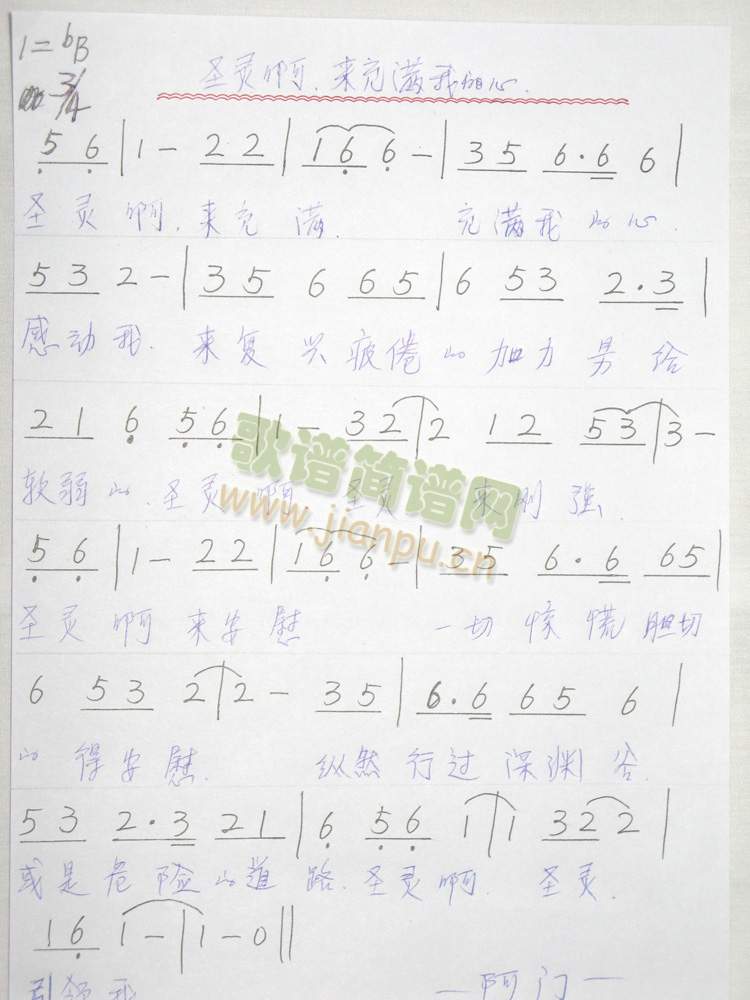 1=bB
3/4
圣灵啊.来充满我的心.
56|1-22|166-|35 6·6 6|
圣灵啊.来充满. 充满我的心.
532-|35 6 65|6 53 2·3|
感动我.来复兴疲倦的加力男给
21 6 56|1-32|2 12 53|3-
软弱的.圣灵啊 圣灵 来刚强.
歌谱简谱网
www.jianpu.cn
56|1-22|166-|35 6·6 65|
圣灵啊来安慰 一切惊慌胆切
6 53 2|2-35|6·6 65 6|
的得安慰. 纵然行过深渊谷.
53 2·3 21|6 56 1|1 322|
或是危险的道路.圣灵啊. 圣灵.
16 1-|1-0||
引领我 —阿门—